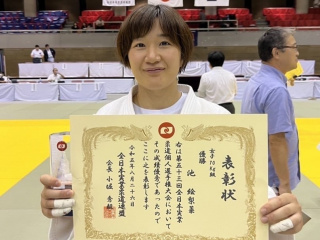 表彰状
女子70kg級
優勝
池 絵梨菜
右は第五十三回全日本実業
柔道個人選手権大会において
その成績優秀であったので
ここに之を表彰します
令和五年八月二十六日
全日本実業柔道連盟
会長 小坂